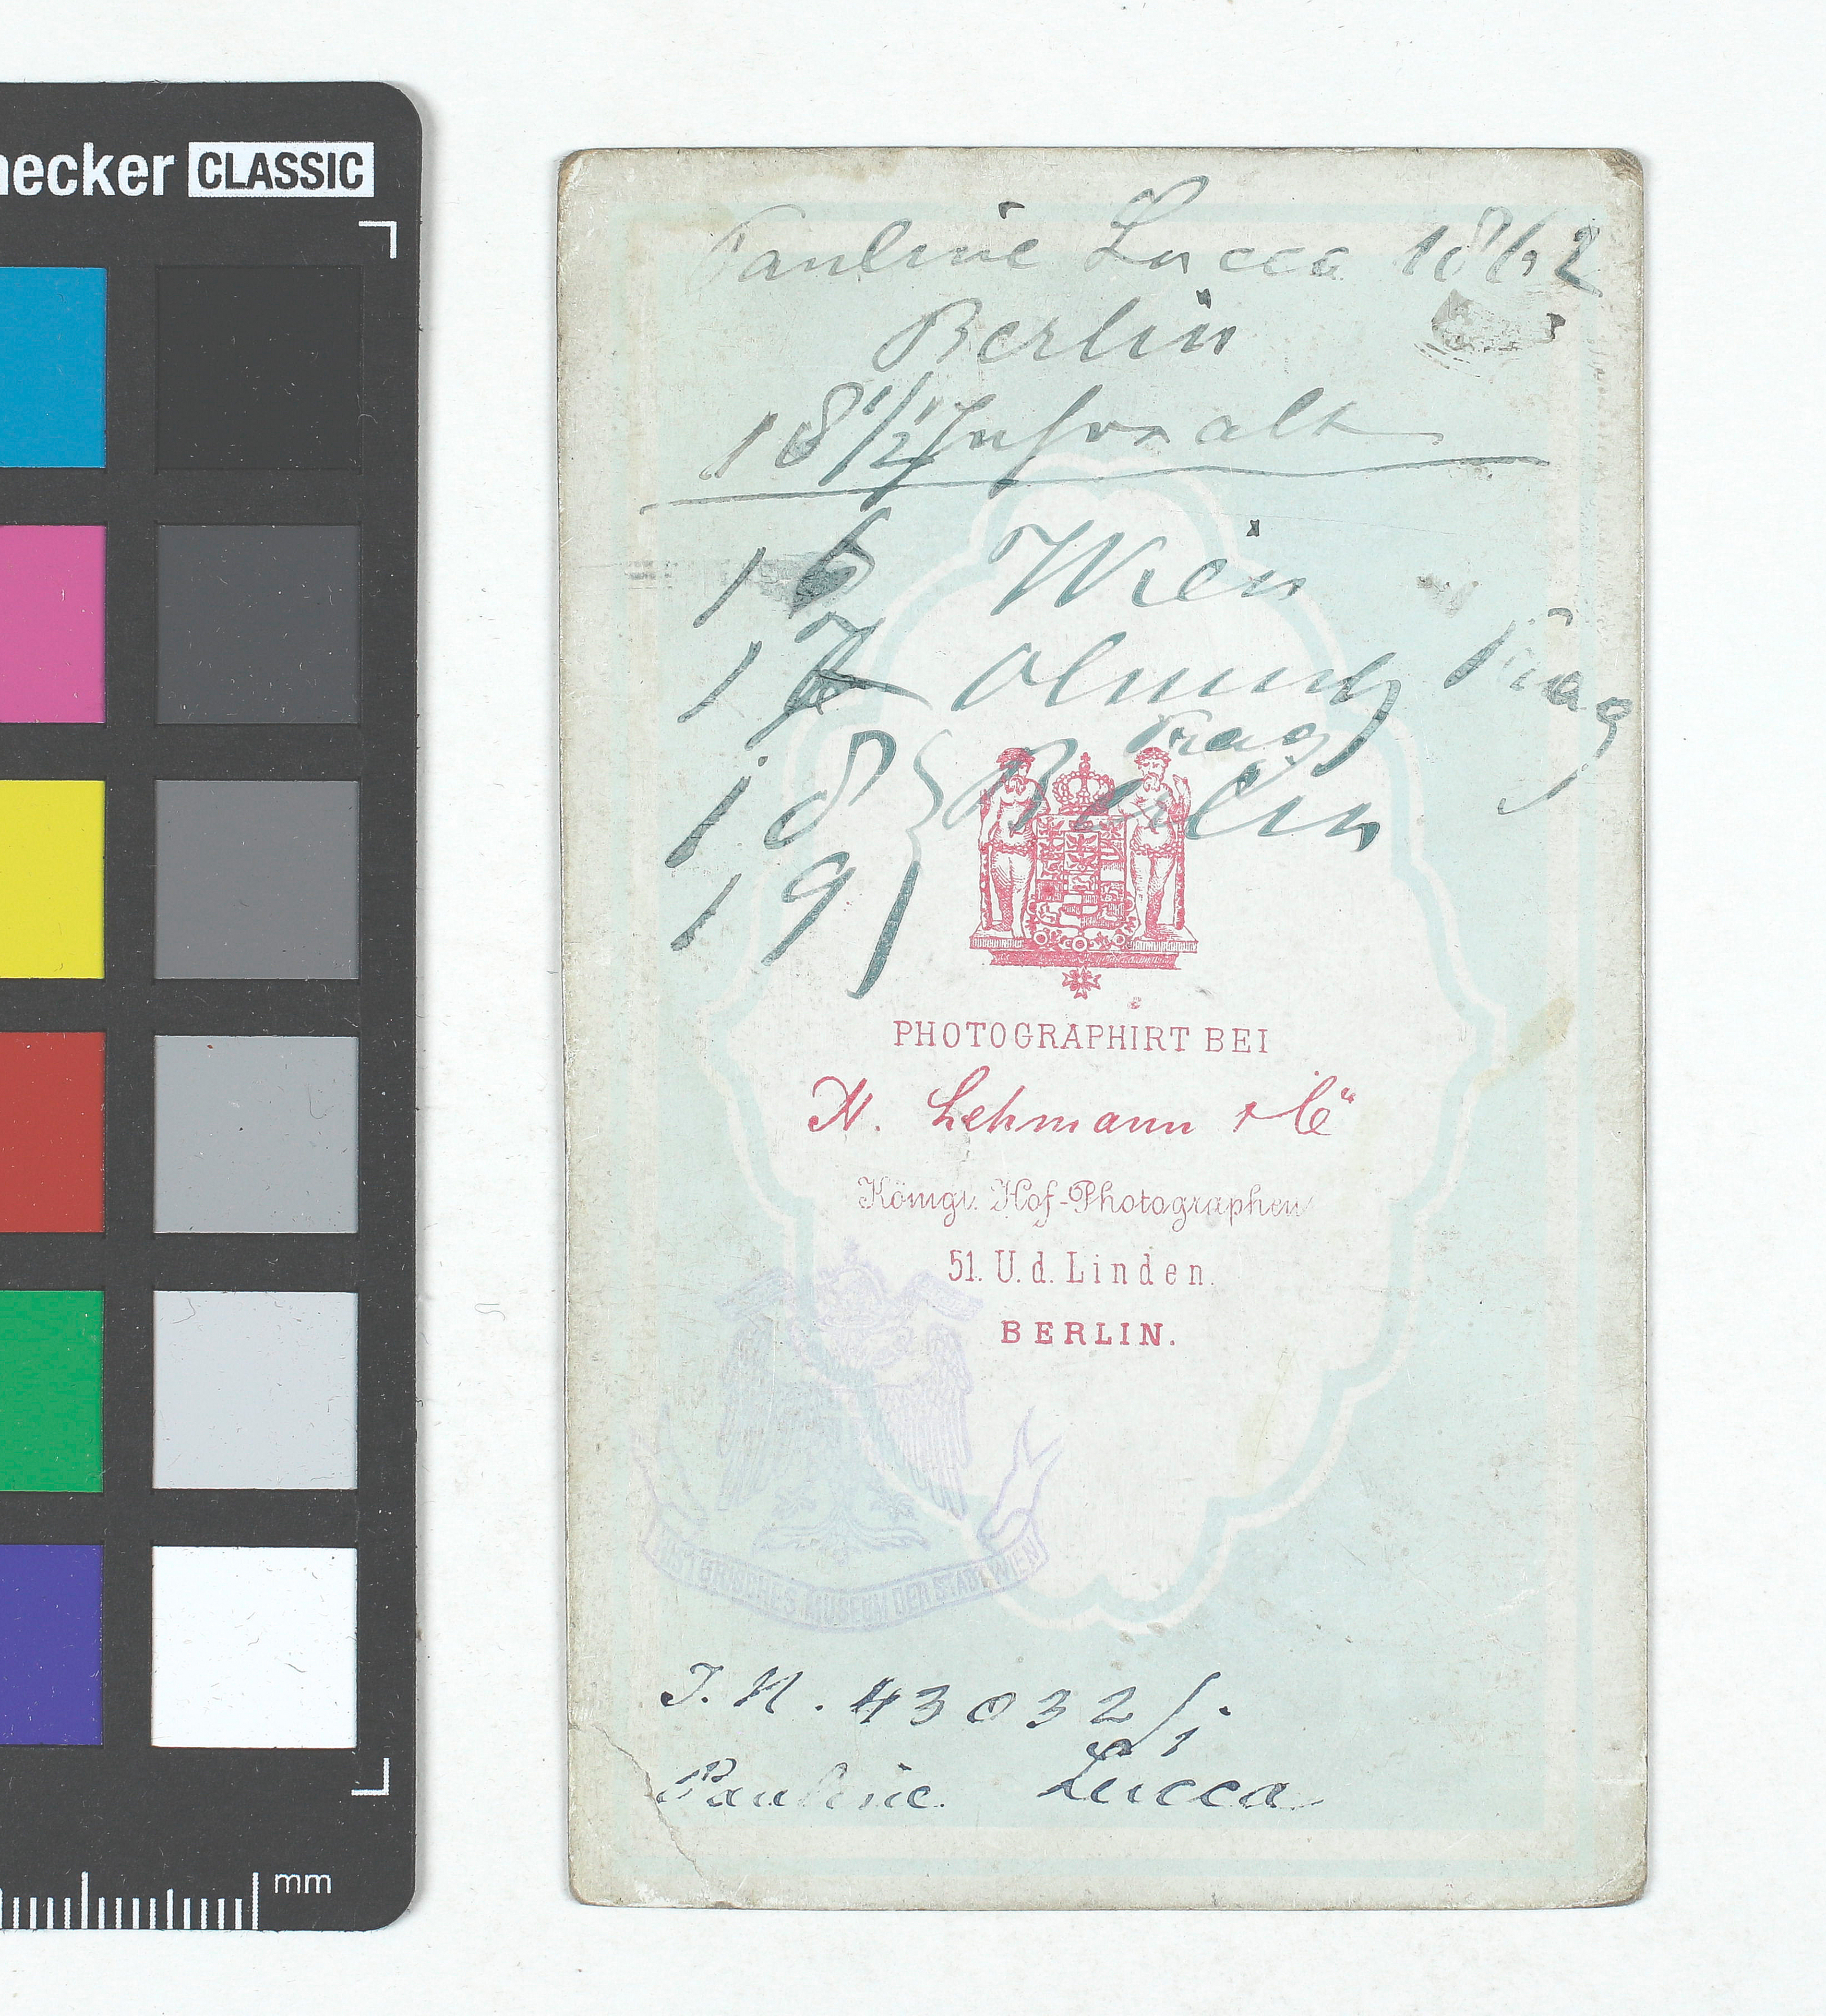 necker CLASSIC
Pauline Lucca 1862
Berlin
18 1/2 Jahre alt
16 Wien
17 Olmütz Prag
Prag
18 } Berlin
19
PHOTOGRAPHIRT BEI
H. Lehmann & Co
Königl. Hof-Photographen
51. U. d. Linden.
BERLIN.
HISTORISCHES MUSEUM DER STADT WIEN
I. N. 43032/1
Pauline Lucca
mm